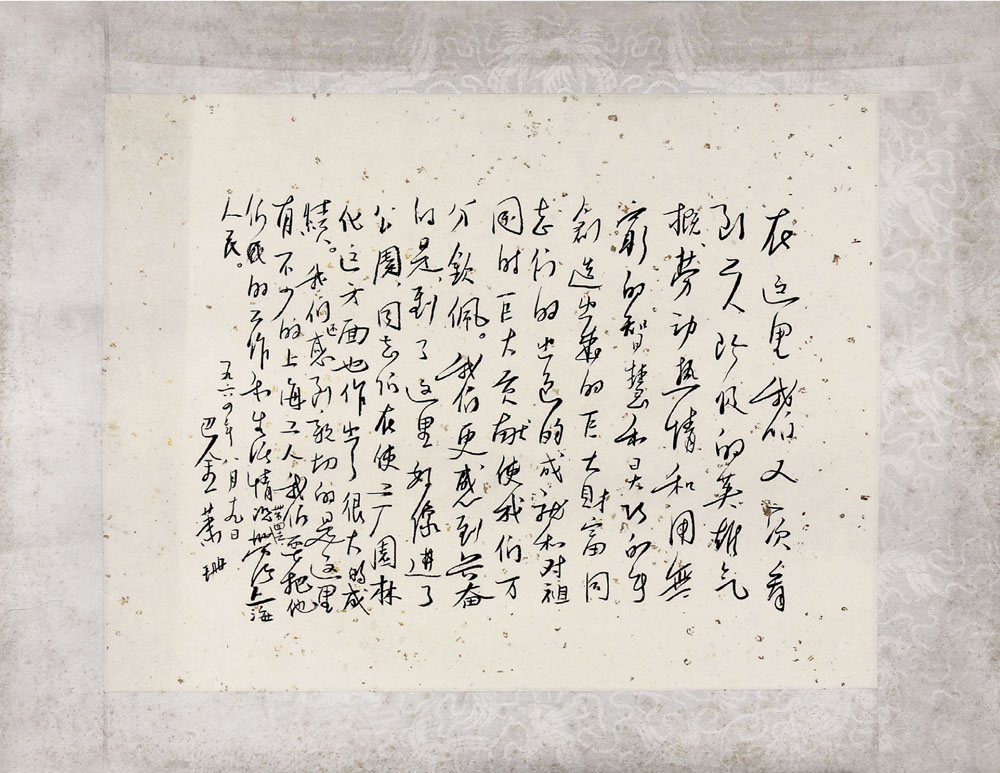 在这里我们又一次看
到工人阶级的英雄气
概、劳动热情和用無
窮的智慧和灵巧的手
創造出来的巨大財富同
志们的出色的成就和对祖
国的巨大贡献使我们万
分欽佩。我们更感到兴奋
的是到了这里好像进了
公園,同志们在使工厂園林
化这方面也作出了很大的成
績。我们还感到親切的是这里
有不少的上海工人我们要把他
们的工作和生活情况带给上海
人民。
一九六四年八月十九日
巴金 萧珊